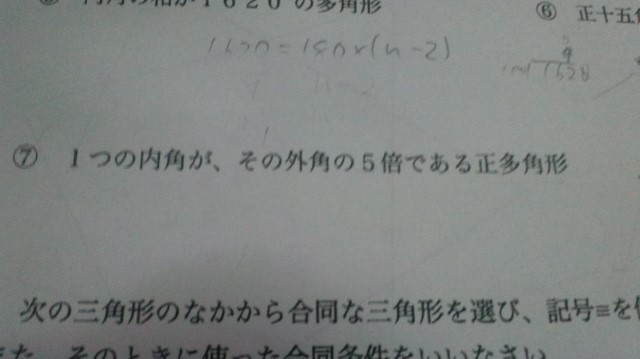 内角の和が1620°の多角形
⑥ 正十五角
1620=180×(n-2)
⑦ 1つの内角が、その外角の5倍である正多角形
次の三角形のなかから合同な三角形を選び、記号≡を使
また、そのときに使った合同条件をいいなさい